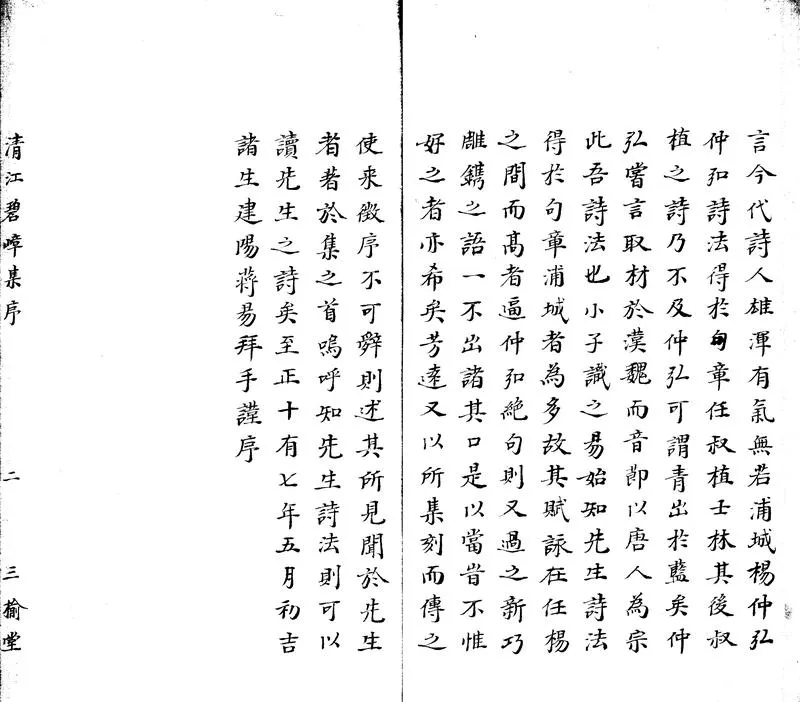 言今代詩人雄渾有氣無若浦城楊仲弘
仲弘詩法得於句章任叔植士林其後叔
植之詩乃不及仲弘可謂青出於藍矣仲
弘嘗言取材於漢魏而音節以唐人為宗
此吾詩法也小子識之易始知先生詩法
得於句章浦城者為多故其賦詠在任楊
之間而髙者逼仲弘絶句則又過之新巧
雕鐫之語一不出諸其口是以當旹不惟
好之者亦希矣芳遠又以所集刻而傳之
使來徵序不可辭則述其所見聞於先生
者著於集之首嗚呼知先生詩法則可以
讀先生之詩矣至正十有七年五月初吉
諸生建陽蔣易拜手謹序
清江碧嶂集序 二 三榆堂